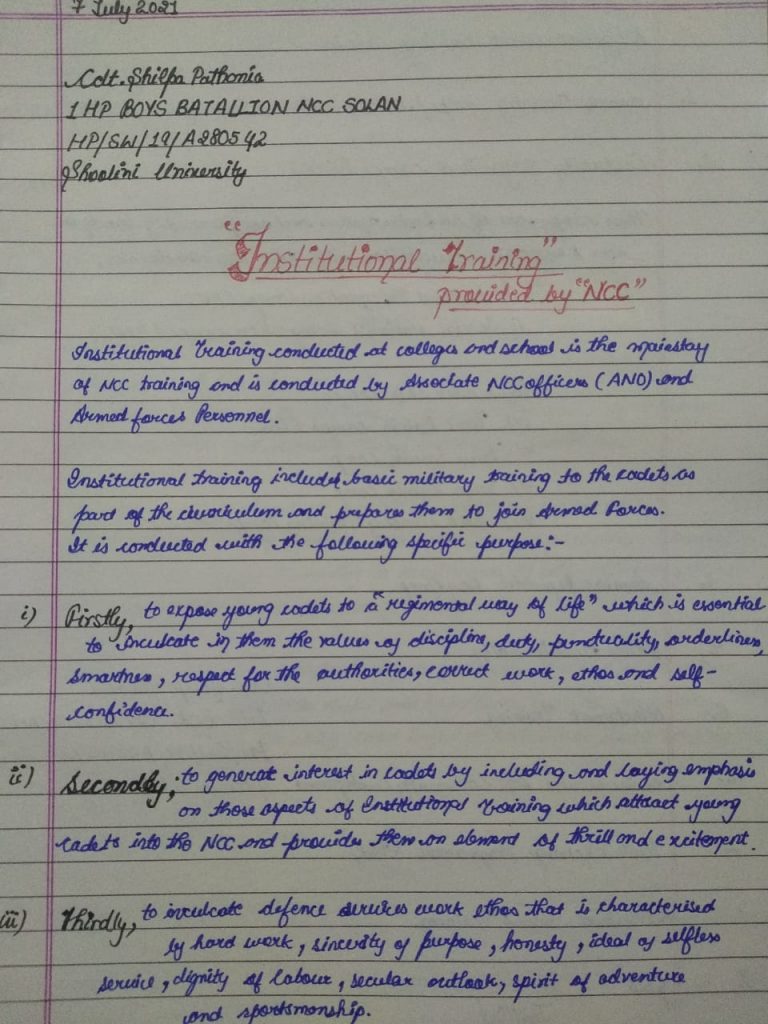 7 July 2021
Cdt. Shilpa Pathania
1 HP BOYS BATALLION NCC SOLAN
HP/SW/19/A280542
Shoolini University
"Institutional Training"
provided by "NCC"
Institutional Training conducted at colleges and school is the mainstay
of NCC training and is conducted by Associate NCC officers (ANO) and
Armed forces Personnel.
Institutional training includes basic military training to the cadets as
part of the curriculum and prepares them to join Armed Forces.
It is conducted with the following specific purpose:-
i) Firstly, to expose young cadets to a "regimental way of life" which is essential
to inculcate in them the values of discipline, duty, punctuality, orderliness,
smartness, respect for the authorities, correct work, ethos and self-
confidence.
ii) Secondly, to generate interest in cadets by including and laying emphasis
on those aspects of Institutional Training which attract young
cadets into the NCC and provides them an element of thrill and excitement.
iii) Thirdly, to inculcate defence services work ethos that is characterised
by hard work, sincerity of purpose, honesty, ideal of selfless
service, dignity of labour, secular outlook, spirit of adventure
and sportsmanship.